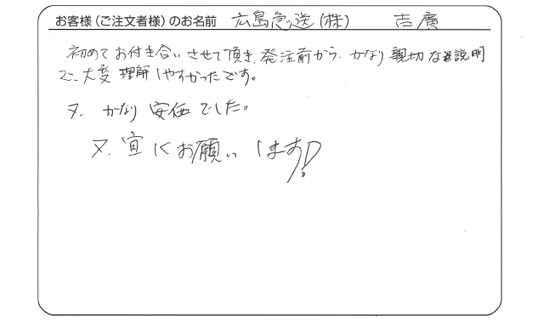 お客様（ご注文者様）のお名前 広島急送（株） 吉廣
初めてお付き合いさせて頂き、発注前から、かなり親切な説明
で、大変理解しやすかったです。
又、かなり安価でした。
又、宜しくお願いします!